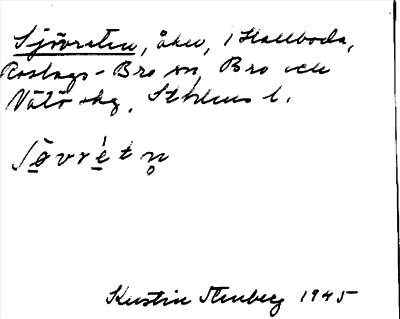 Sjövreten, åker, i Hallboda,
Roslags-Bro sn, Bro och
Vätö skg, Sthlms l.
ʃö̀vrètn̥
Kerstin Stenberg 1945